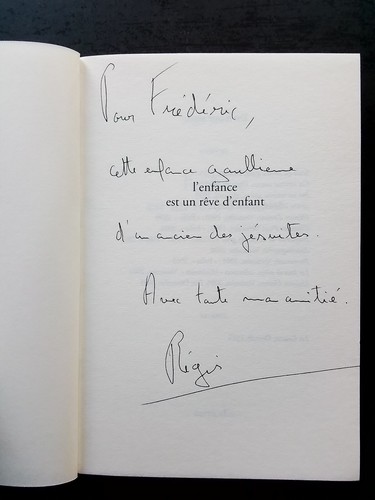 Pour Frédéric,
cette enfance gaullienne
l'enfance
est un rêve d'enfant
d'un ancien des jésuites.
Avec toute mon amitié.
Régis